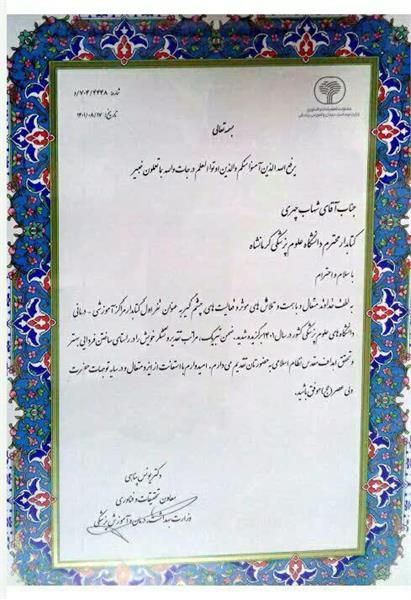 شماره: ۷۰۴/۴۴۴۸/د
تاریخ: ۱۴۰۱/۰۸/۱۷
معاونت تحقیقات و فناوری
وزارت بهداشت، درمان و آموزش پزشکی
بسمه تعالی
یرفع الله الذین آمنوا منکم والذین اوتوا العلم درجات والله بما تعملون خبیر
جناب آقای شهاب چهری
کتابدار محترم دانشگاه علوم پزشکی کرمانشاه
با سلام و احترام
به لطف خداوند متعال و با همت و تلاش های موثر و فعالیت های چشم گیر به عنوان نفر اول کتابدار مراکز آموزشی - درمانی
دانشگاه های علوم پزشکی کشور در سال ۱۴۰۱ برگزیده شدید. ضمن تبریک، مراتب تقدیر و تشکر خویش را در راستای ساختن فردایی بهتر
و تحقق اهداف مقدس نظام اسلامی به حضورتان تقدیم می دارم. امیدوارم با استعانت از ایزد متعال و در سایه توجهات حضرت
ولی عصر (عج) موفق باشید.
دکتر یونس پناهی
معاون تحقیقات و فناوری
وزارت بهداشت، درمان و آموزش پزشکی